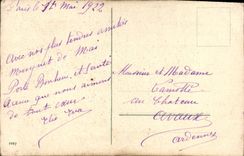 Paris le 1er Mai 1922
Avec nos plus tendres amitiés
Muguet de Mai
Porte Bonheur et Santé
A ceux que nous aimons
de tout cœur
Monsieur et Madame
au Chateau
Avaux
Ardennes